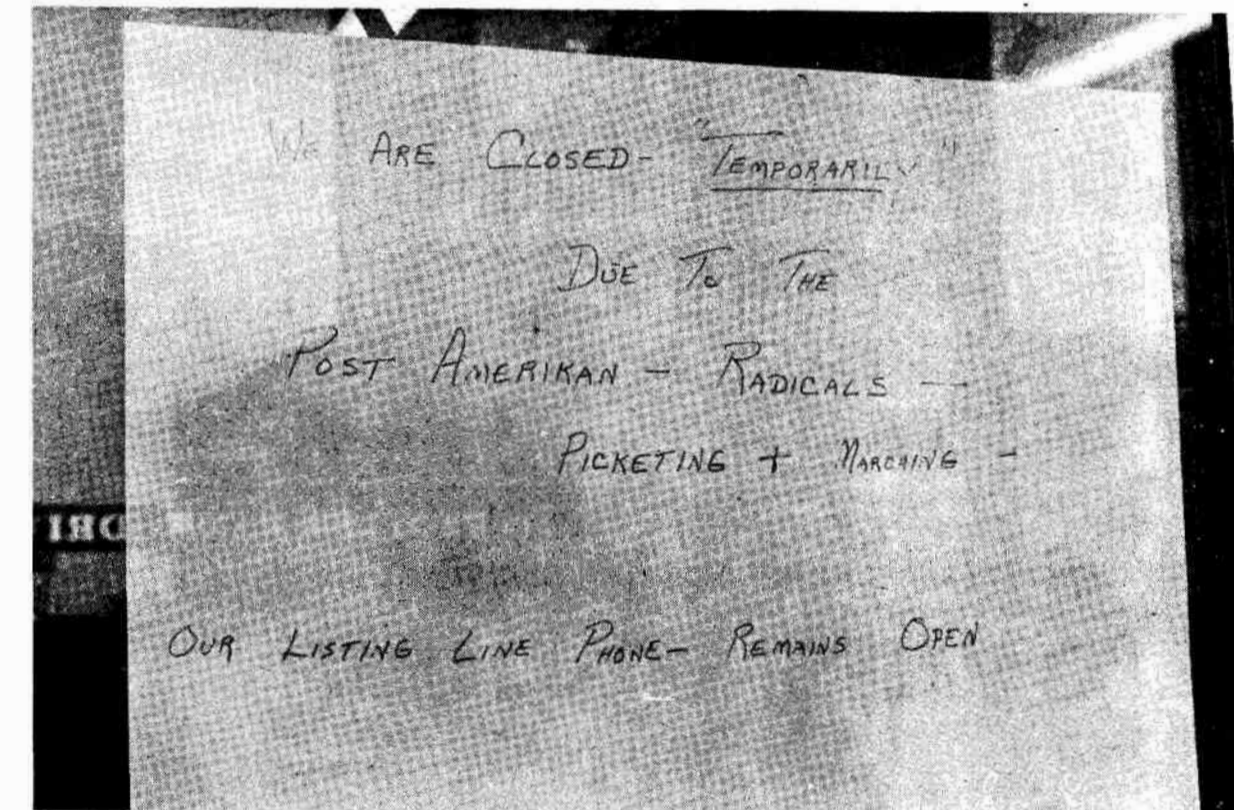 We ARE CLOSED- "TEMPORARILY"
DUE To THE
POST AMERIKAN - RADICALS -
PICKETING + MARCHING -
OUR LISTING LINE PHONE- REMAINS OPEN